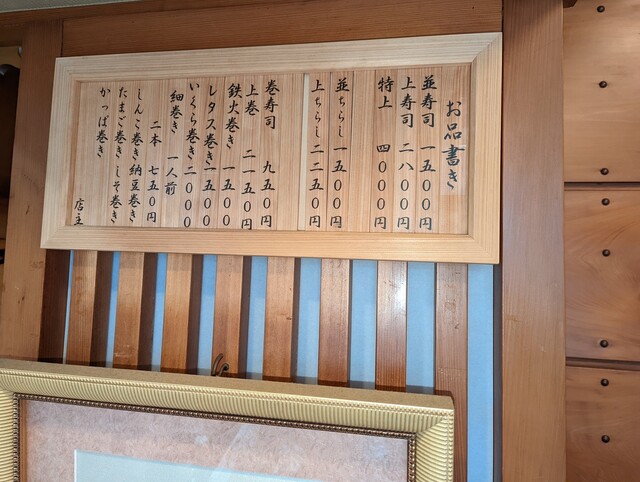 お品書き
並寿司 一五〇〇円
上寿司 二八〇〇円
特上 四〇〇〇円
並ちらし 一五〇〇円
上ちらし 二二五〇円
巻寿司 九五〇円
上巻 二一五〇円
鉄火巻き 一五〇〇
レタス巻き 一五〇〇
いくら巻き 二〇〇〇
細巻き 一人前
二本 七五〇円
しんこ巻き 納豆巻き
たまご巻き しそ巻き
かっぱ巻き
店主